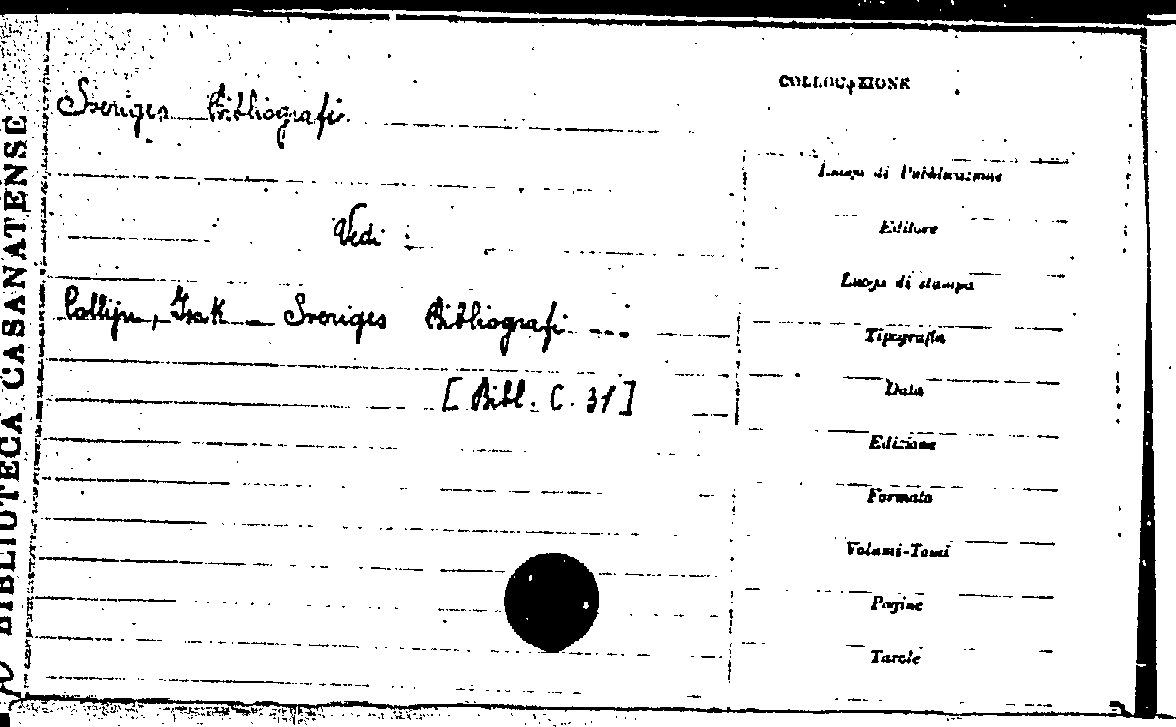 BIBLIOTECA CASANATENSE
Sveriges Bibliografi.
Vedi :
Collijn, Isak — Sveriges Bibliografi ...
[Bibl. C. 31]
COLLOCAZIONE
Luogo di Pubblicazione
Editore
Luogo di stampa
Tipografia
Data
Edizione
Formato
Volumi-Tomi
Pagine
Tavole